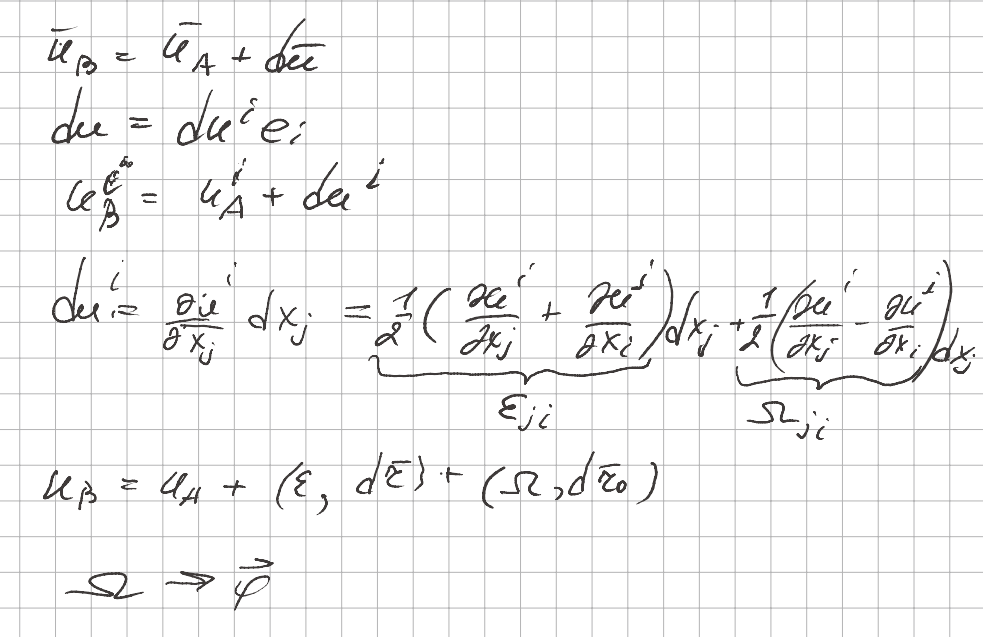 ū_B = ū_A + dū
du = du^i e_i
u_B^i = u_A^i + du^i
du^i = ∂u^i/∂x_j dx_j = 1/2 (∂u^i/∂x_j + ∂u^j/∂x_i) dx_j + 1/2 (∂u^i/∂x_j − ∂u^j/∂x_i) dx_j
ε_ji Ω_ji
u_B = u_A + (ε, dr̄) + (Ω, dr̄_0)
Ω → φ⃗